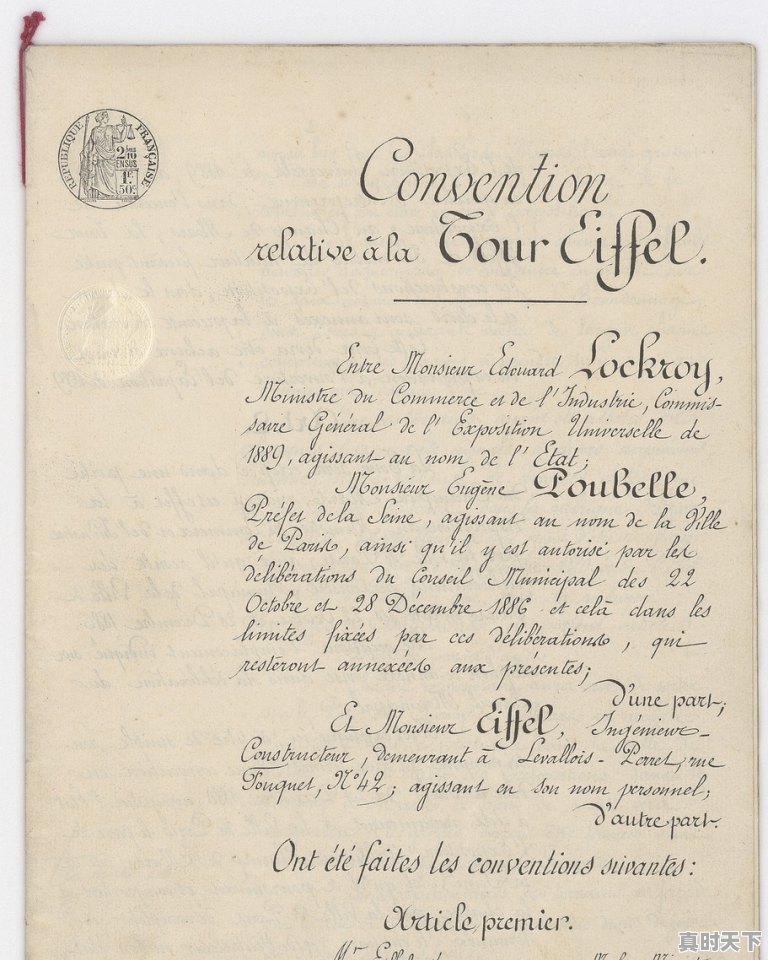 RÉPUBLIQUE FRANÇAISE
2/10
EN SUS
1F.
50C.
Convention
relative à la Tour Eiffel.
Entre Monsieur Edouard Lockroy,
Ministre du Commerce et de l'Industrie, Commis-
saire Général de l'Exposition Universelle de
1889, agissant au nom de l'Etat;
Monsieur Eugène Poubelle,
Préfet de la Seine, agissant au nom de la Ville
de Paris, ainsi qu'il y est autorisé par les
délibérations du Conseil Municipal des 22
Octobre et 28 Décembre 1886 et celà dans les
limites fixées par ces délibérations, qui
resteront annexées aux présentes;
D'une part;
Et Monsieur Eiffel, Ingénieur-
Constructeur, demeurant à Levallois-Perret, rue
Fouquet, N°42; agissant en son nom personnel;
D'autre part.
Ont été faites les conventions suivantes:
Article premier.
真时天下